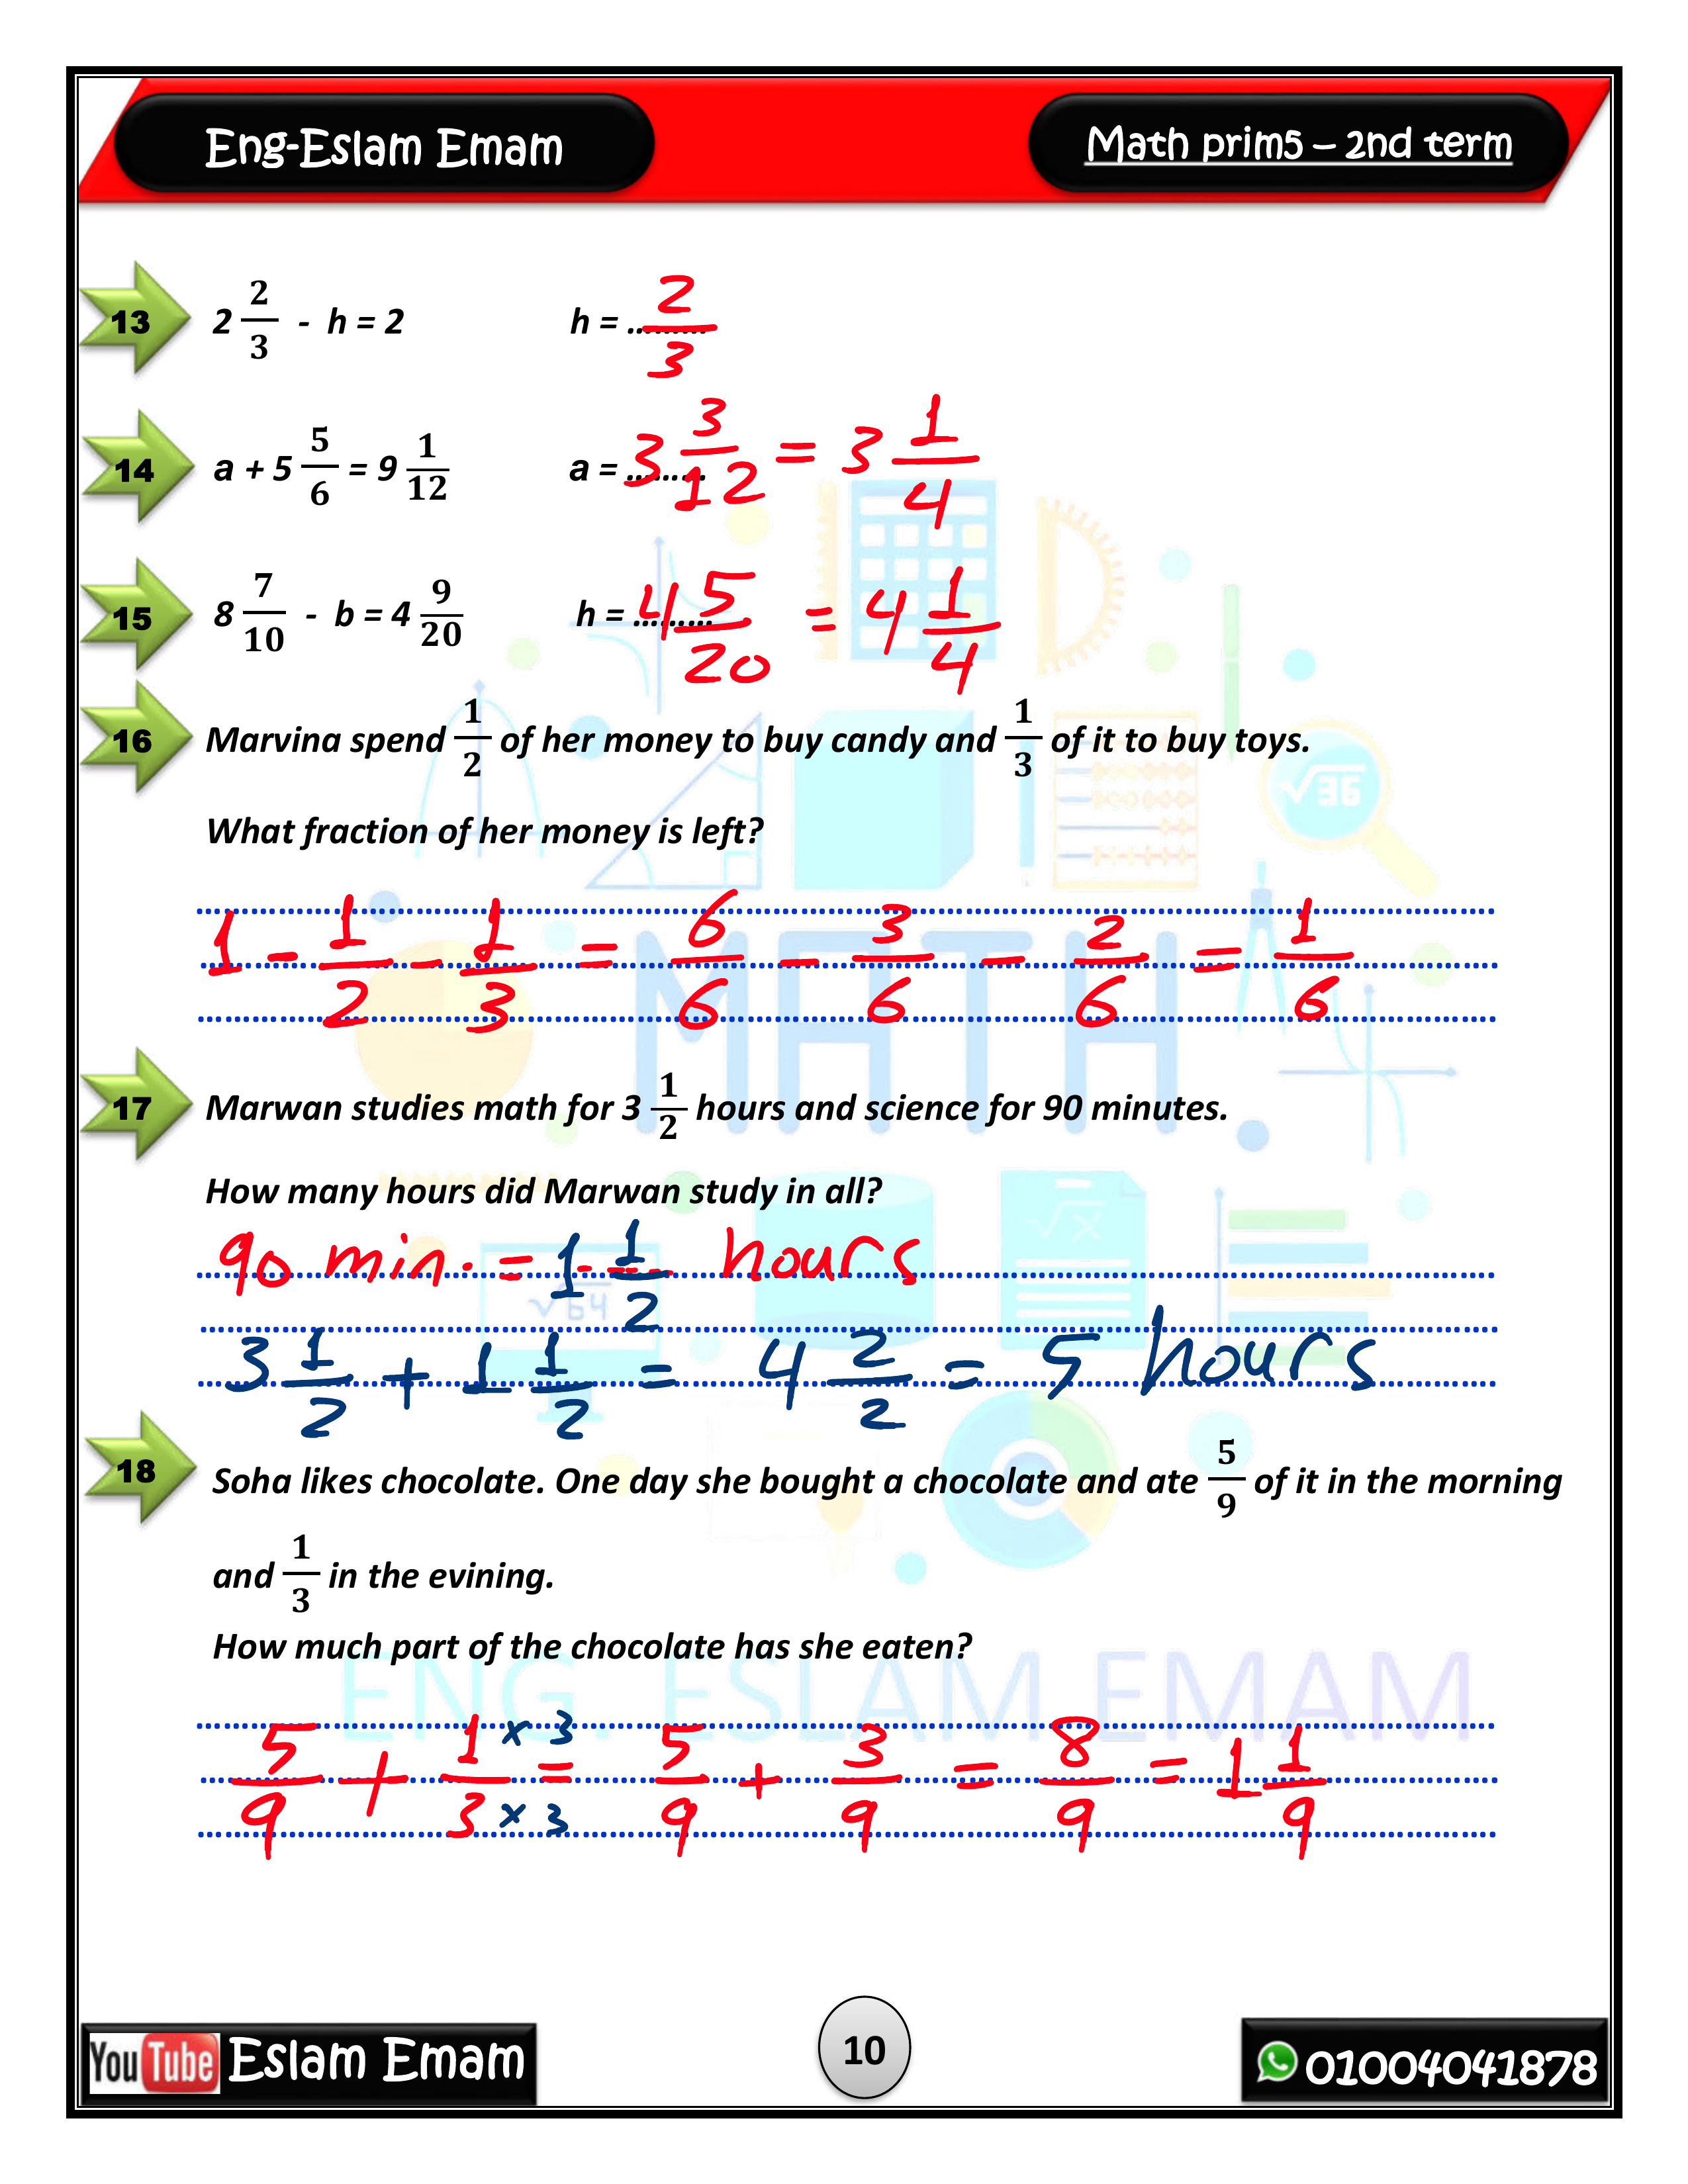 Eng-Eslam Emam
Math prim5 – 2nd term
13 2 2/3 - h = 2 h = ......... 2/3
14 a + 5 5/6 = 9 1/12 a = ......... 3 3/12 = 3 1/4
15 8 7/10 - b = 4 9/20 h = ......... 4 5/20 = 4 1/4
16 Marvina spend 1/2 of her money to buy candy and 1/3 of it to buy toys.
What fraction of her money is left?
1 - 1/2 - 1/3 = 6/6 - 3/6 - 2/6 = 1/6
17 Marwan studies math for 3 1/2 hours and science for 90 minutes.
How many hours did Marwan study in all?
90 min. = 1 1/2 hours
3 1/2 + 1 1/2 = 4 2/2 = 5 hours
18 Soha likes chocolate. One day she bought a chocolate and ate 5/9 of it in the morning
and 1/3 in the evining.
How much part of the chocolate has she eaten?
5/9 + 1/3 × 3 / × 3 = 5/9 + 3/9 = 8/9 = 1 1/9
MATH
√36
√x
√64
ENG. ESLAM EMAM
YouTube Eslam Emam
10
01004041878